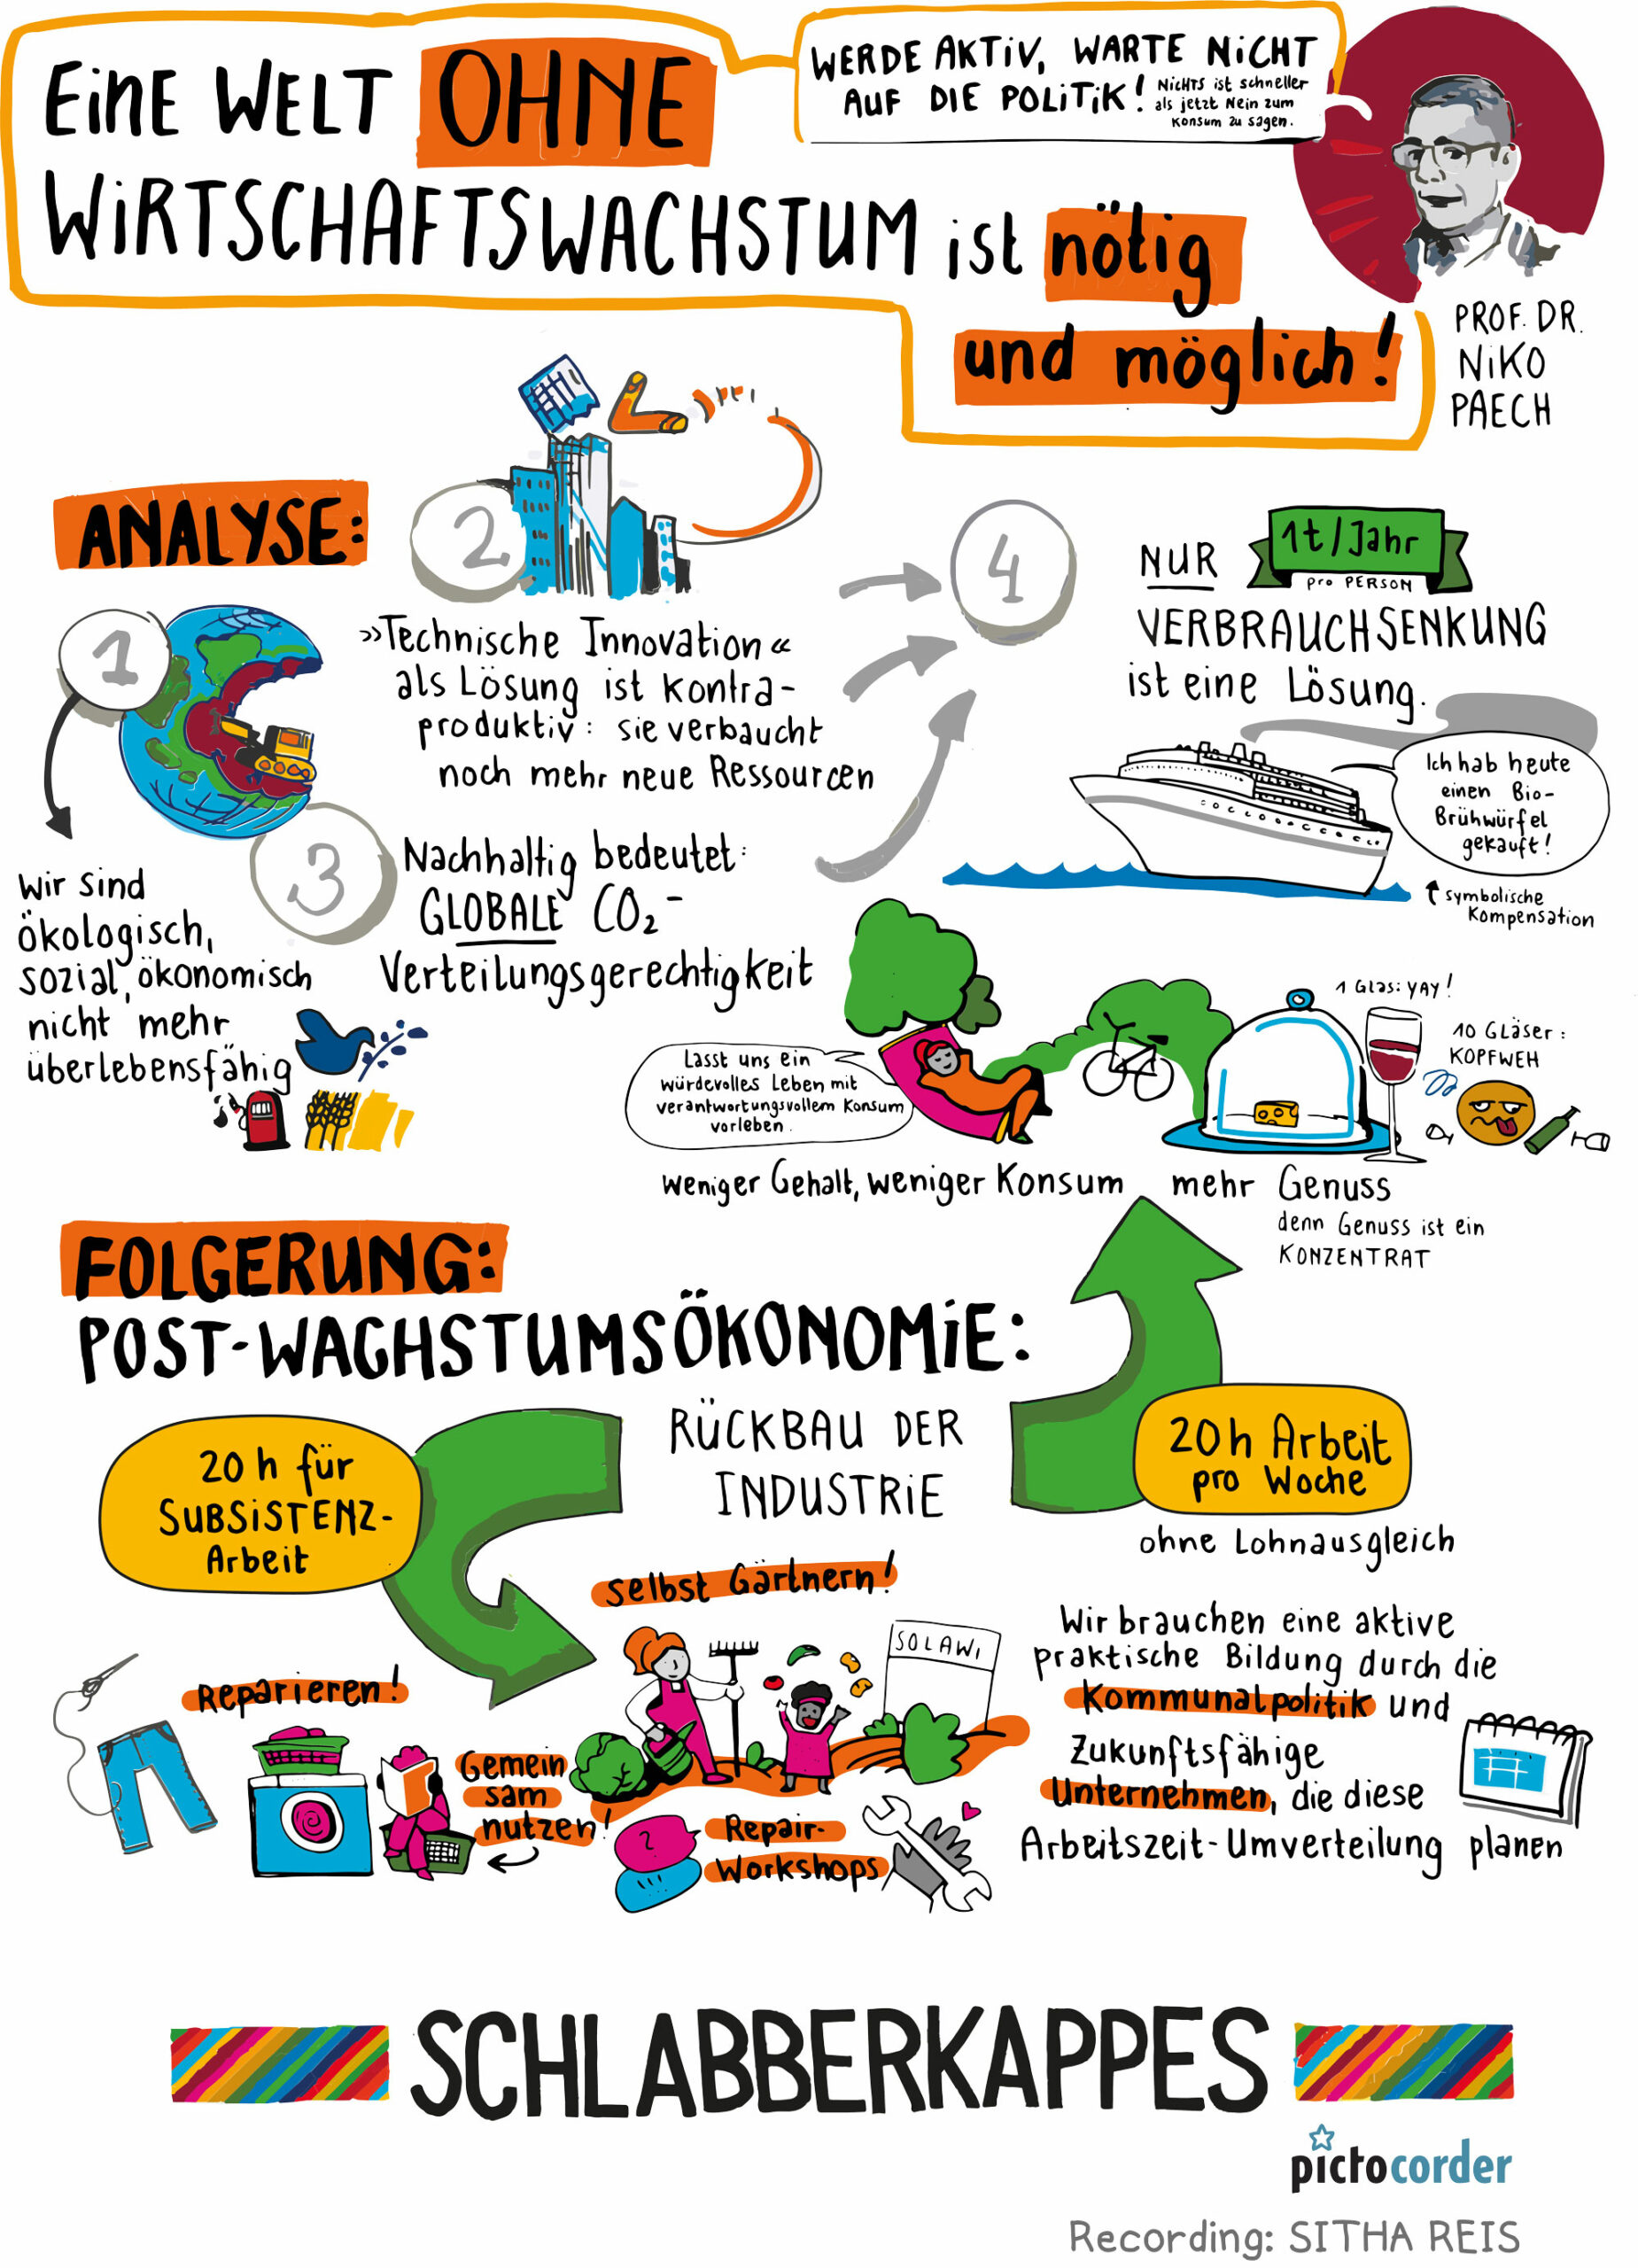 EiNE WELT OHNE
WiRTSCHAFTSWACHSTUM ist nötig
und möglich!
WERDE AKTiV, WARTE NiCHT
AUF DIE POLiTiK!
NiCHTS ist schneller
als jetzt Nein zum
Konsum zu sagen.
PROF. DR.
NiKO
PAECH
ANALYSE:
1
Wir sind
ökologisch,
sozial, ökonomisch
nicht mehr
überlebensfähig
2
»Technische Innovation«
als Lösung ist kontra-
produktiv: sie verbaucht
noch mehr neue Ressourcen
3
Nachhaltig bedeutet:
GLOBALE CO₂-
Verteilungsgerechtigkeit
4
NUR 1t/Jahr
pro PERSON
VERBRAUCHSENKUNG
ist eine Lösung.
Ich hab heute
einen Bio-
Brühwürfel
gekauft!
symbolische
Kompensation
Lasst uns ein
würdevolles Leben mit
verantwortungsvollem Konsum
vorleben.
1 Glas: YAY!
10 Gläser:
KOPFWEH
weniger Gehalt, weniger Konsum mehr Genuss
denn Genuss ist ein
KONZENTRAT
FOLGERUNG:
POST-WACHSTUMSÖKONOMiE:
RÜCKBAU DER
INDUSTRiE
20 h für
SUBSiSTENZ-
Arbeit
20h Arbeit
pro Woche
ohne Lohnausgleich
selbst Gärtnern!
SOLAWi
Reparieren!
Gemein
sam
nutzen!
Repair-
Workshops
Wir brauchen eine aktive
praktische Bildung durch die
Kommunalpolitik und
Zukunftsfähige
Unternehmen, die diese
Arbeitszeit-Umverteilung planen
SCHLABBERKAPPES
pictocorder
Recording: SITHA REIS